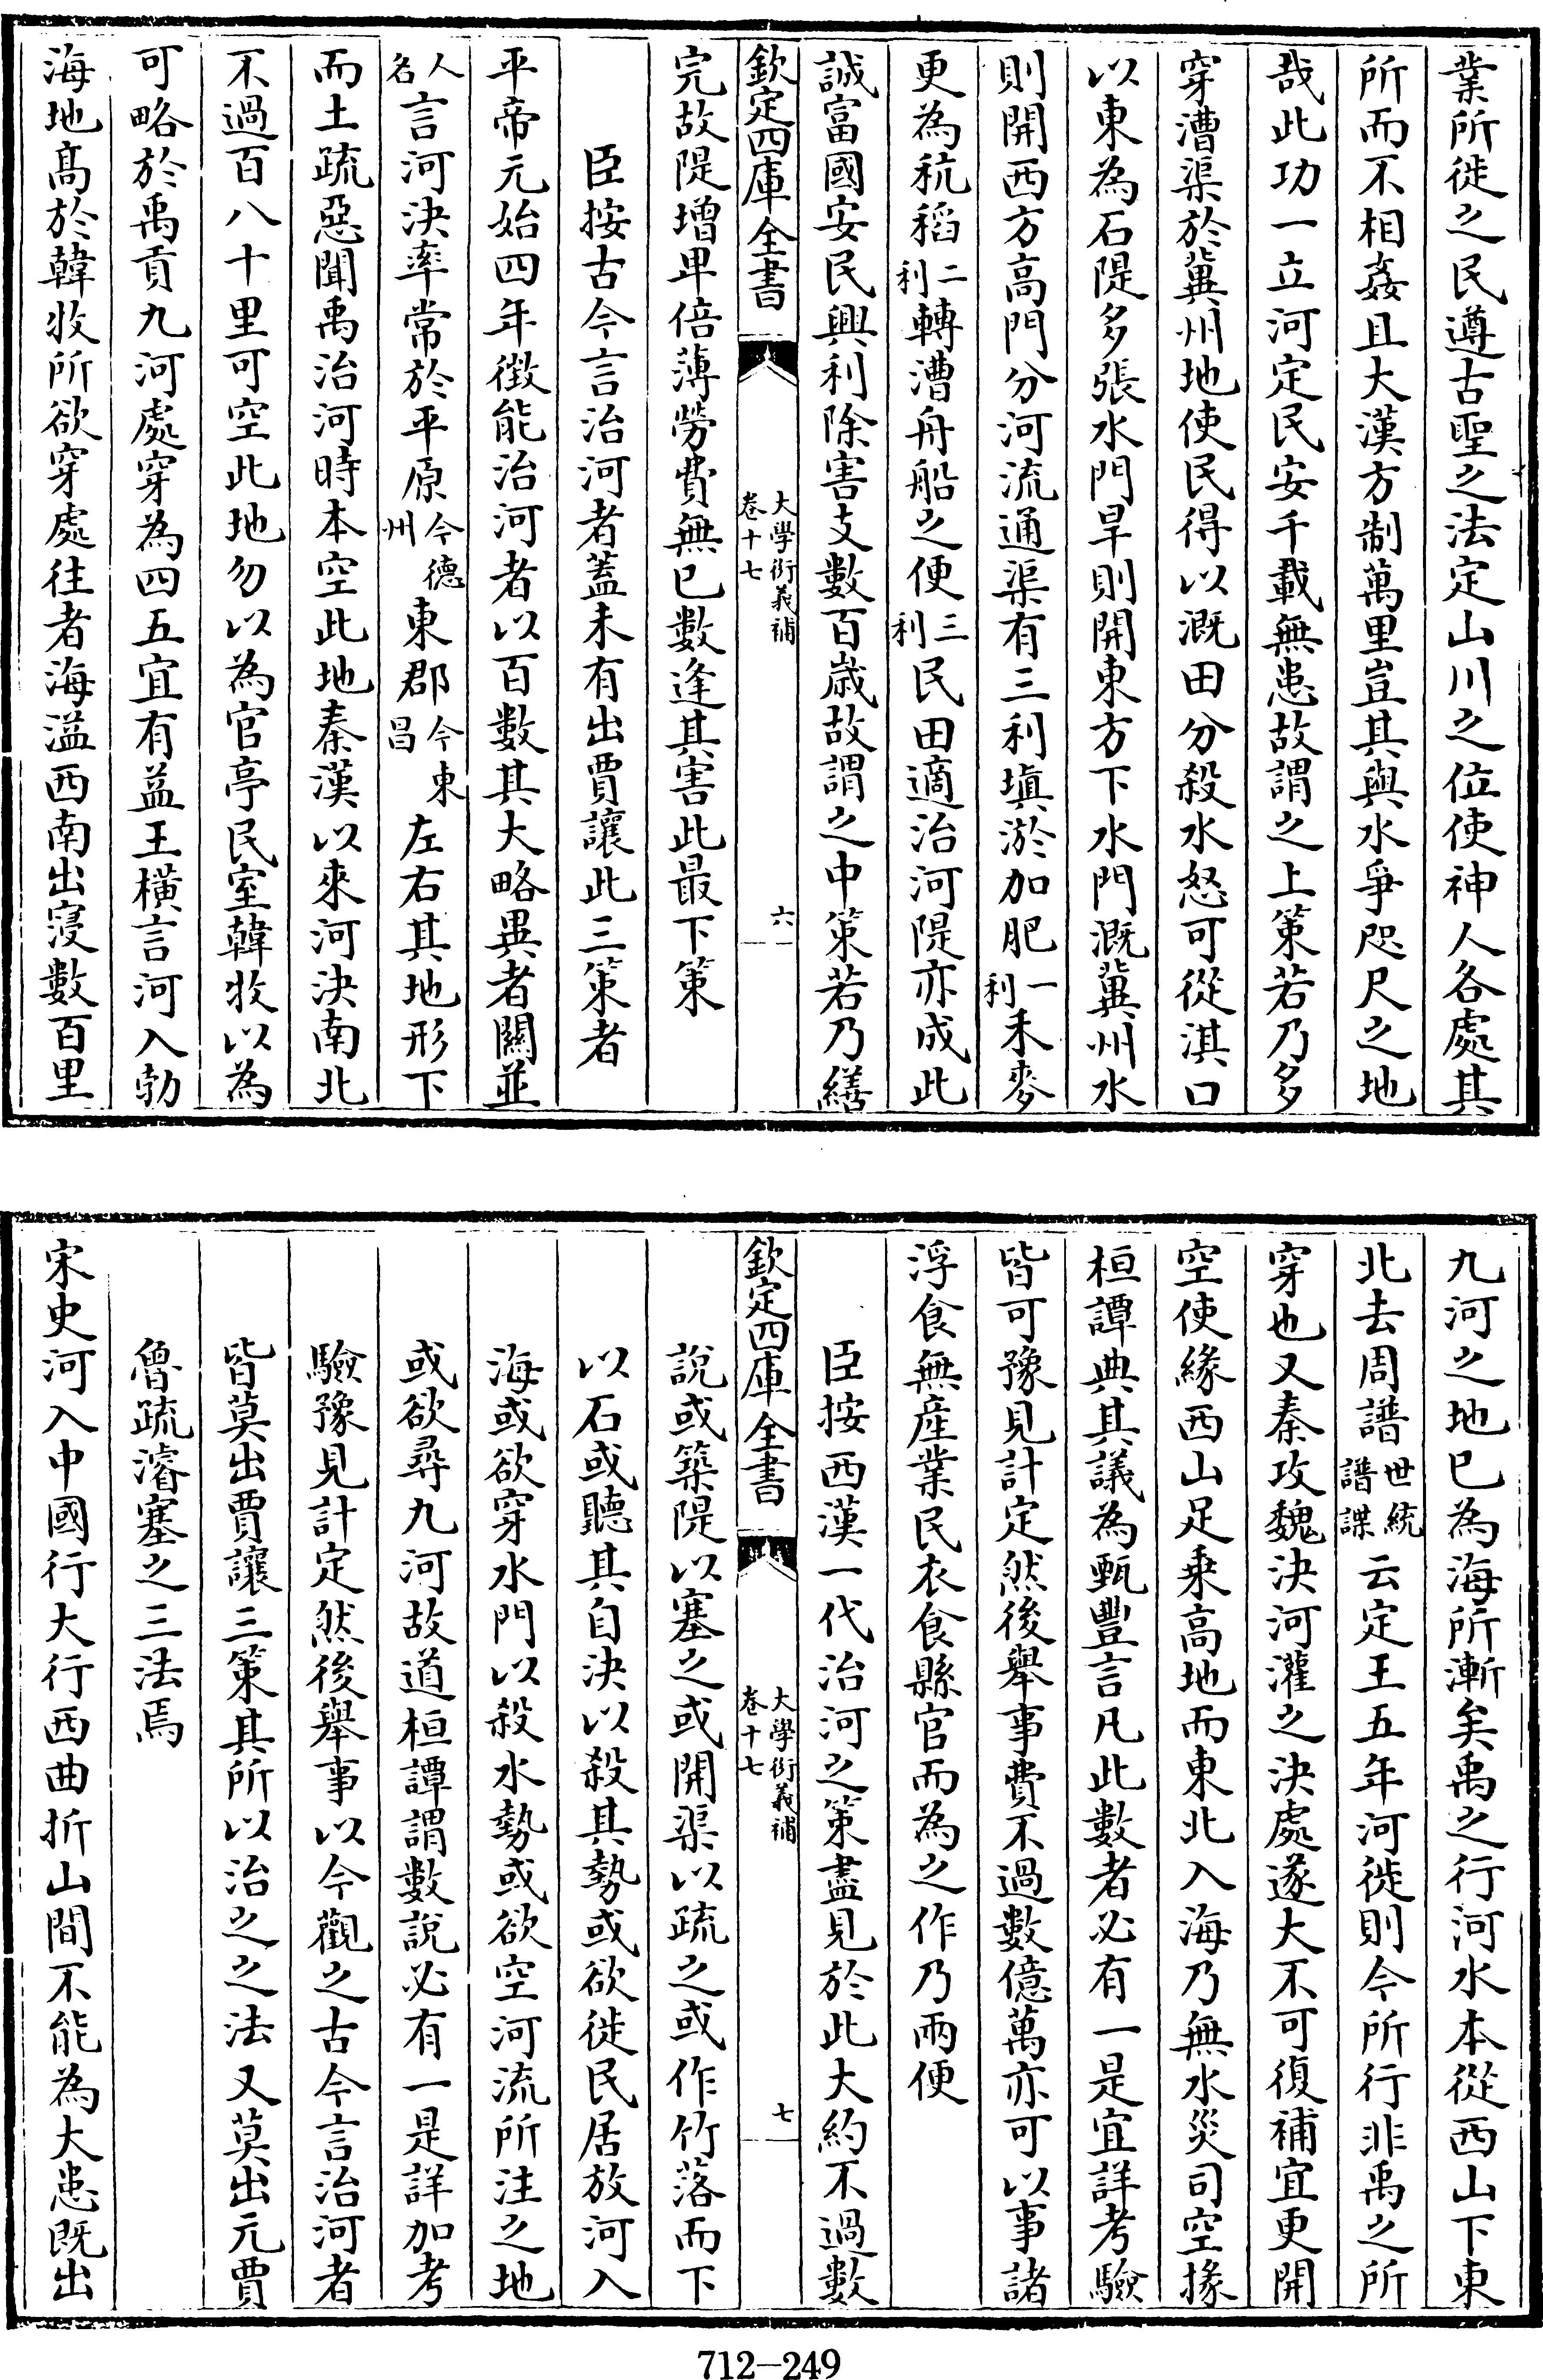 業所徙之民遵古聖之法定山川之位使神人各處其
所而不相姦且大漢方制萬里豈其與水爭咫尺之地
哉此功一立河定民安千載無患故謂之上策若乃多
穿漕渠於冀州地使民得以溉田分殺水怒可從淇口
以東為石隄多張水門旱則開東方下水門溉冀州水
則開西方高門分河流通渠有三利塡淤加肥一利禾麥
更為秔稻二利轉漕舟船之便三利民田適治河隄亦成此
誠富國安民興利除害支數百歲故謂之中策若乃繕
欽定四庫全書 大學衍義補卷十七 六
完故隄增卑倍薄勞費無已數逢其害此最下策
臣按古今言治河者蓋未有出賈讓此三策者
平帝元始四年徵能治河者以百數其大略異者關並
人名言河決率常於平原今德州東郡今東昌左右其地形下
而土疏惡聞禹治河時本空此地秦漢以來河決南北
不過百八十里可空此地勿以為官亭民室韓牧以為
可略於禹貢九河處穿為四五宜有益王橫言河入勃
海地髙於韓牧所欲穿處往者海溢西南出寖數百里
九河之地已為海所漸矣禹之行河水本從西山下東
北去周譜世統譜諜云定王五年河徙則今所行非禹之所
穿也又秦攻魏決河灌之決處遂大不可復補宜更開
空使緣西山足乘高地而東北入海乃無水災司空掾
桓譚典其議為甄豐言凡此數者必有一是宜詳考驗
皆可豫見計定然後舉事費不過數億萬亦可以事諸
浮食無産業民衣食縣官而為之作乃兩便
臣按西漢一代治河之策盡見於此大約不過數
欽定四庫全書 大學衍義補卷十七 七
說或築隄以塞之或開渠以疏之或作竹落而下
以石或聽其自決以殺其勢或欲徙民居放河入
海或欲穿水門以殺水勢或欲空河流所注之地
或欲尋九河故道桓譚謂數說必有一是詳加考
驗豫見計定然後舉事以今觀之古今言治河者
皆莫出賈讓三策其所以治之之法又莫出元賈
魯疏濬塞之三法焉
宋史河入中國行大行西曲折山間不能為大患既出
712-249